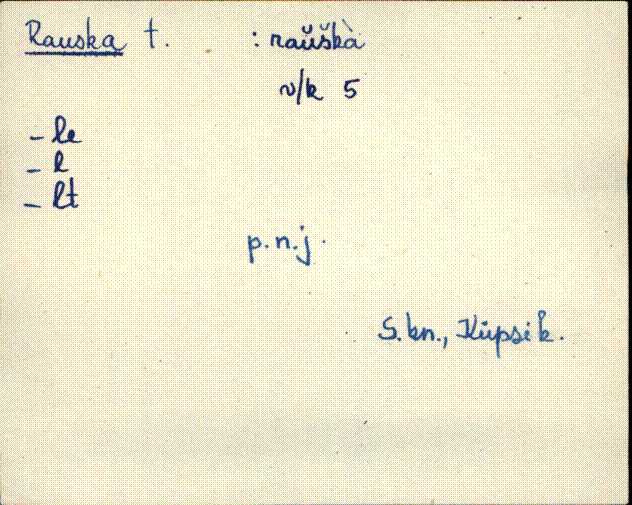 Rauska t. : raŭškà
v/k 5
- le
- l
- lt
p.n.j.
S.kn., Küpsi k.